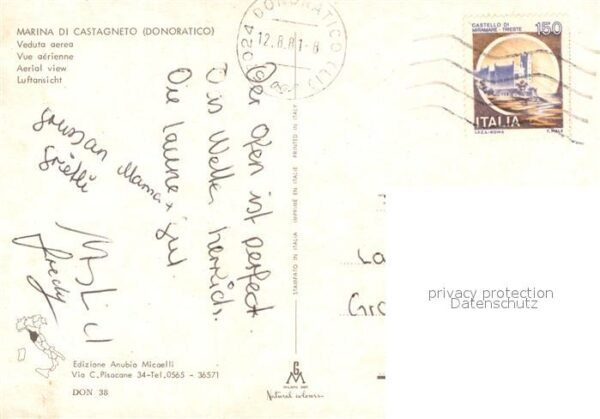 MARINA DI CASTAGNETO (DONORATICO)
Veduta aerea
Vue aérienne
Aerial view
Luftansicht
57024 DONORATICO (LI)
12.8.81-8
CASTELLO DI
MIRAMARE - TRIESTE
150
ITALIA
I.P.Z.S.-ROMA
Der Ofen ist perfect.
Das Wetter herrlich.
Die Laune gut.
Gruss an Mama +
Grietli
Fredy
STAMPATO IN ITALIA IMPRIMÉ EN ITALIE PRINTED IN ITALY
privacy protection
Datenschutz
Edizione Anubio Micaelli
Via C. Pisacane 34-Tel. 0565 - 36571
DON 38
GM
MILANO
Natural colours